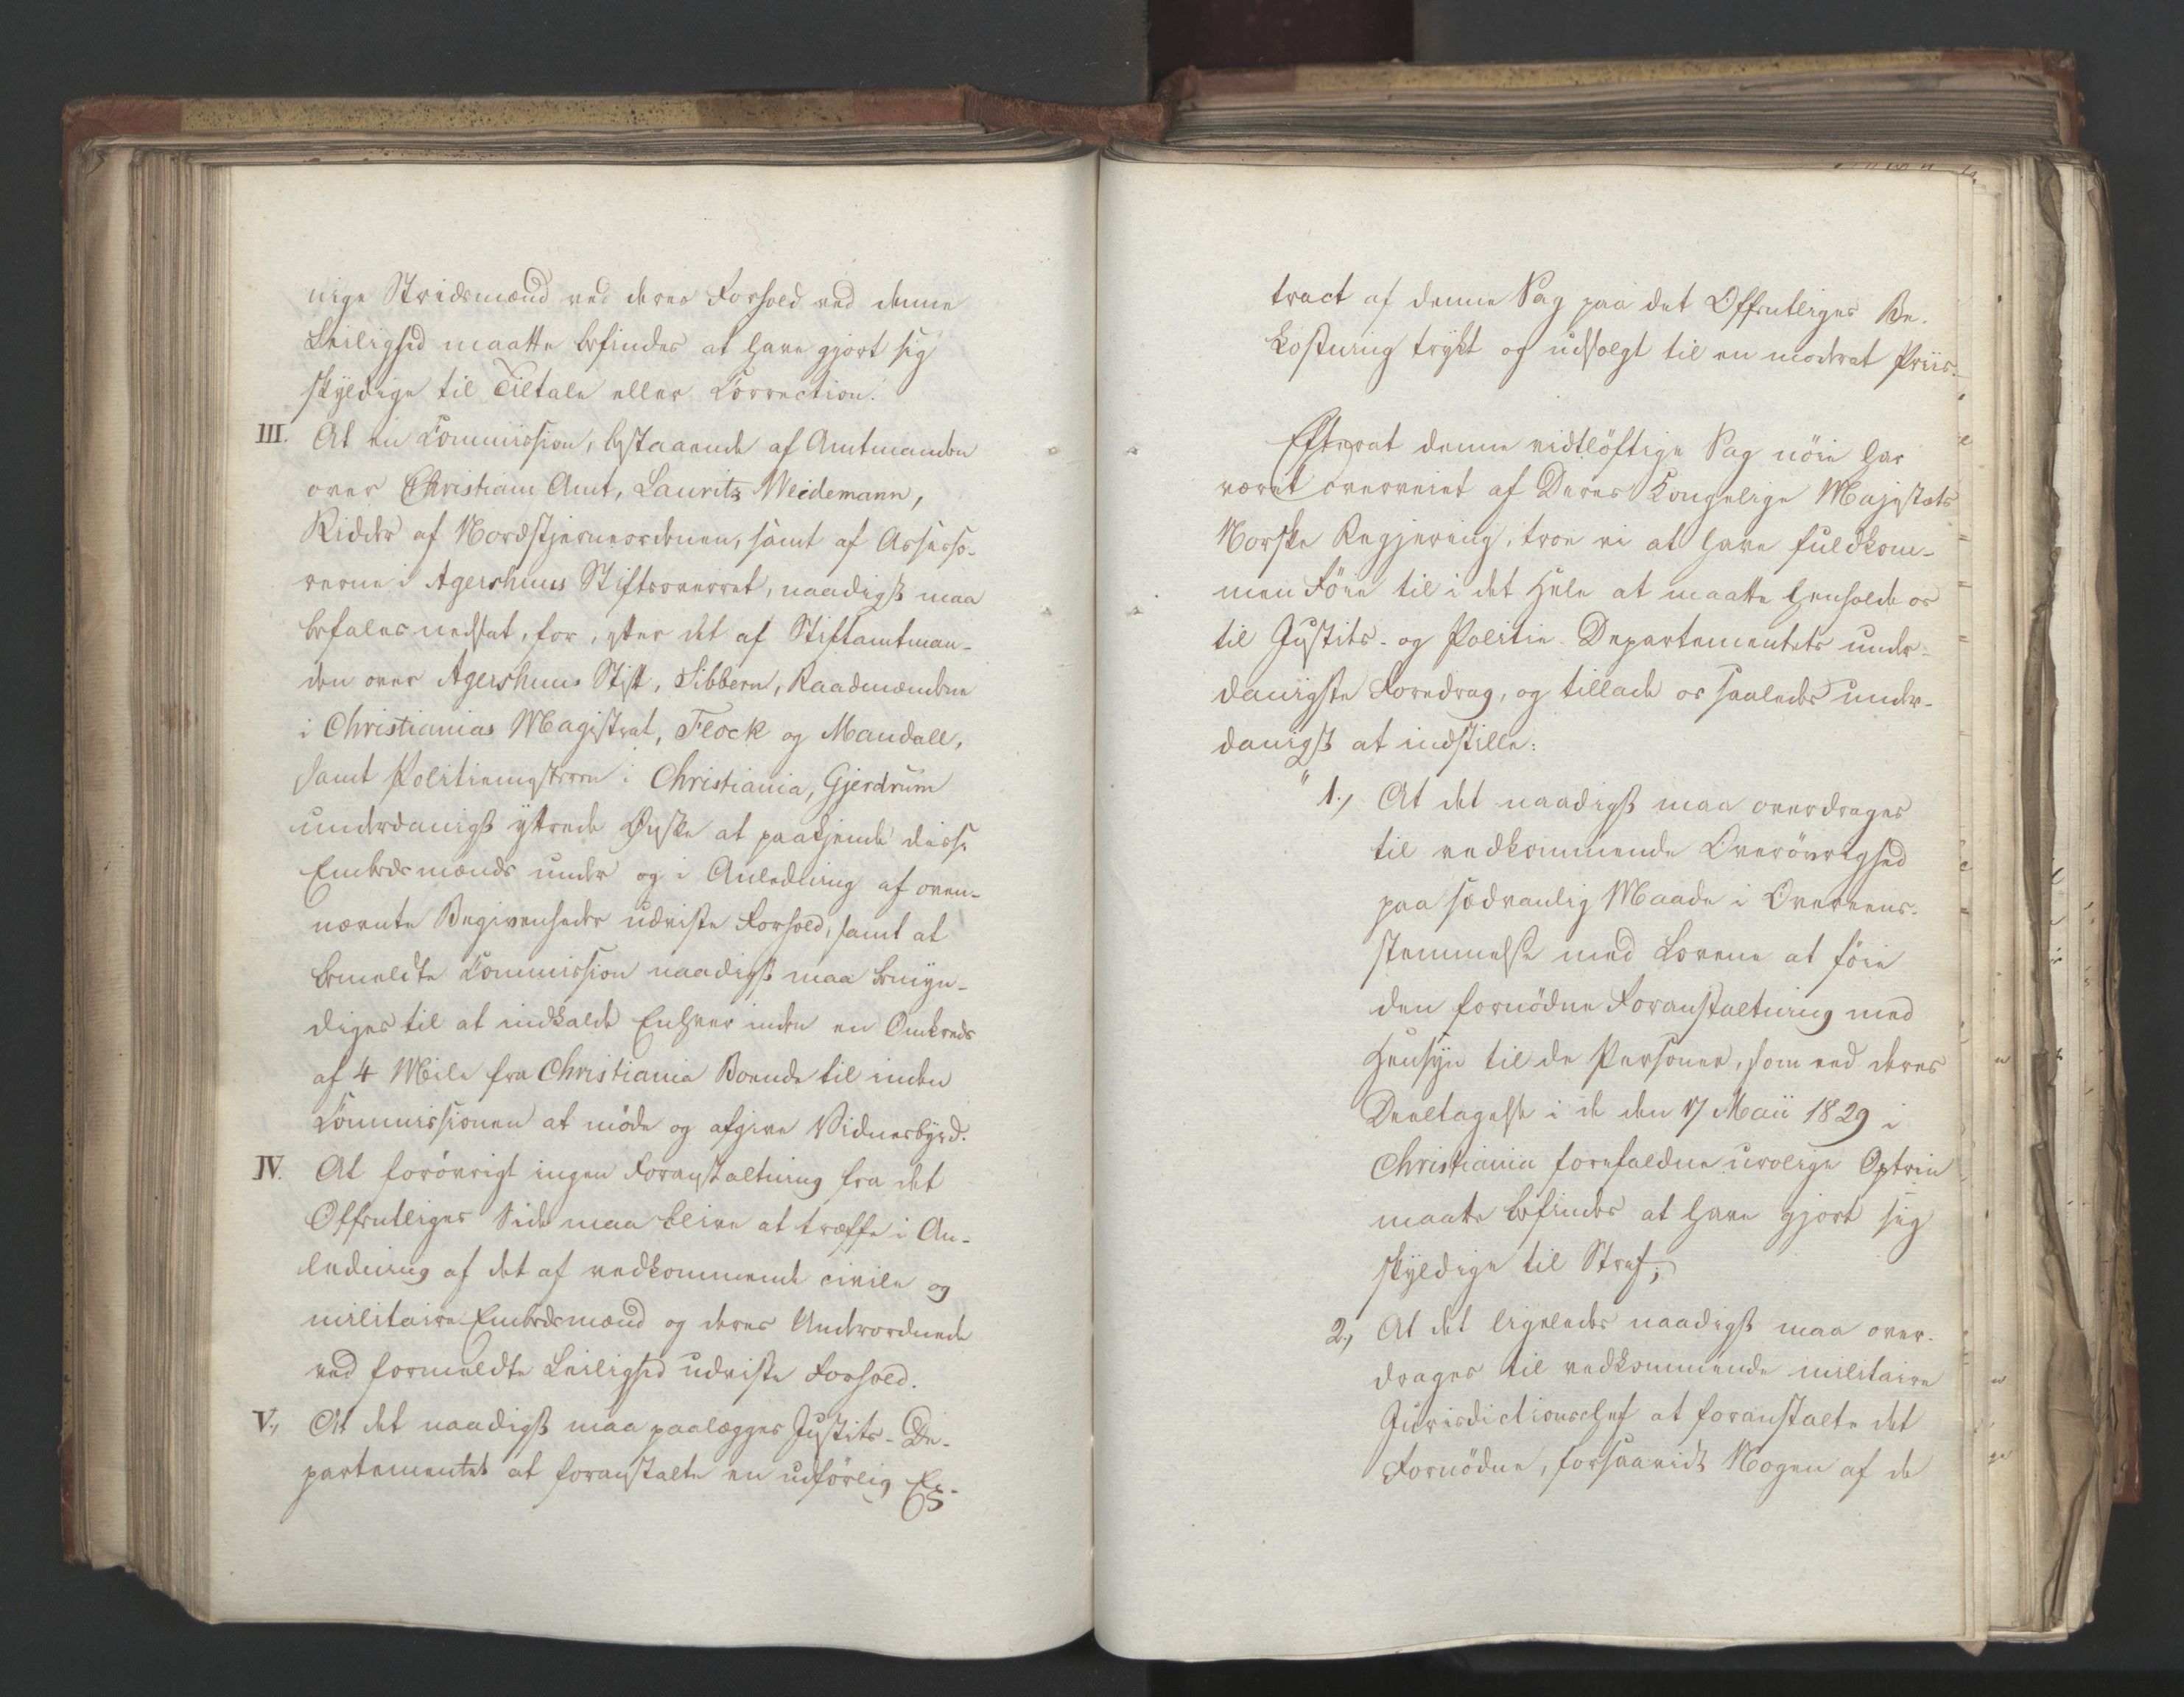 nige Stridsmænd ved deres Forhold ved denne
Leilighed maatte befindes at have gjort sig
skyldige til Tiltale eller Correction.
III. At en Commission, bestaaende af Amtmanden
over Christians Amt, Lauritz Weidemann,
Ridder af Nordstjerneordenen, samt af Assesso-
rerne i Agershuus Stiftsoverret, naadigst maa
befales nedsat, for, efter det af Stiftamtman-
den over Agershuus Stift, Sibbern, Raadmændene
i Christianias Magistrat, Flock og Mandall,
samt Politiemesteren i Christiania, Gjerdrum
underdanigst yttrede Ønske at paakjende disse
Embedsmænds under og i Anledning af oven-
nævnte Begivenheder udviste Forhold, samt at
bemeldte Commission naadigst maa bemyn-
diges til at indkalde Enhver inden en Omkreds
af 4 Mile fra Christiania Boende til inden
Commissionen at møde og afgive Vidnesbyrd.
IV. At forøvrigt ingen Foranstaltning fra det
Offentliges Side maa blive at træffe i An-
ledning af det af vedkommende civile og
militaire Embedsmænd og deres Underordnede
ved formeldte Leilighed udviste Forhold.
V., At det naadigst maa paalægges Justits-De-
partementet at foranstalte en udførlig Ex-
tract af denne Sag paa det Offentliges Be-
kostning trykt og udsolgt til en moderat Priis.
Efterat denne vidtløftige Sag nöie har
været overveiet af Deres Kongelige Majestæts
Norske Regjering, troe vi at have fuldkom-
men Föie til i det Hele at maatte henholde os
til Justits- og Politie-Departementets under-
danigste Foredrag, og tillade os saaledes under-
danigst at indstille:
" 1., At det naadigst maa overdrages
til vedkommende Overövrighed
paa sædvanlig Maade i Overeens-
stemmelse med Lovene at föie
den fornödne Foranstaltning med
Hensyn til de Personer, som ved deres
Deeltagelse i de den 17 Maii 1829 i
Christiania forefaldne urolige Optrin
maatte befindes at have gjort sig
skyldige til Straf;
2., At det ligeledes naadigst maa over-
drages til vedkommende militaire
Jurisdictionschef at foranstalte det
Fornödne, forsaavidt Nogen af de